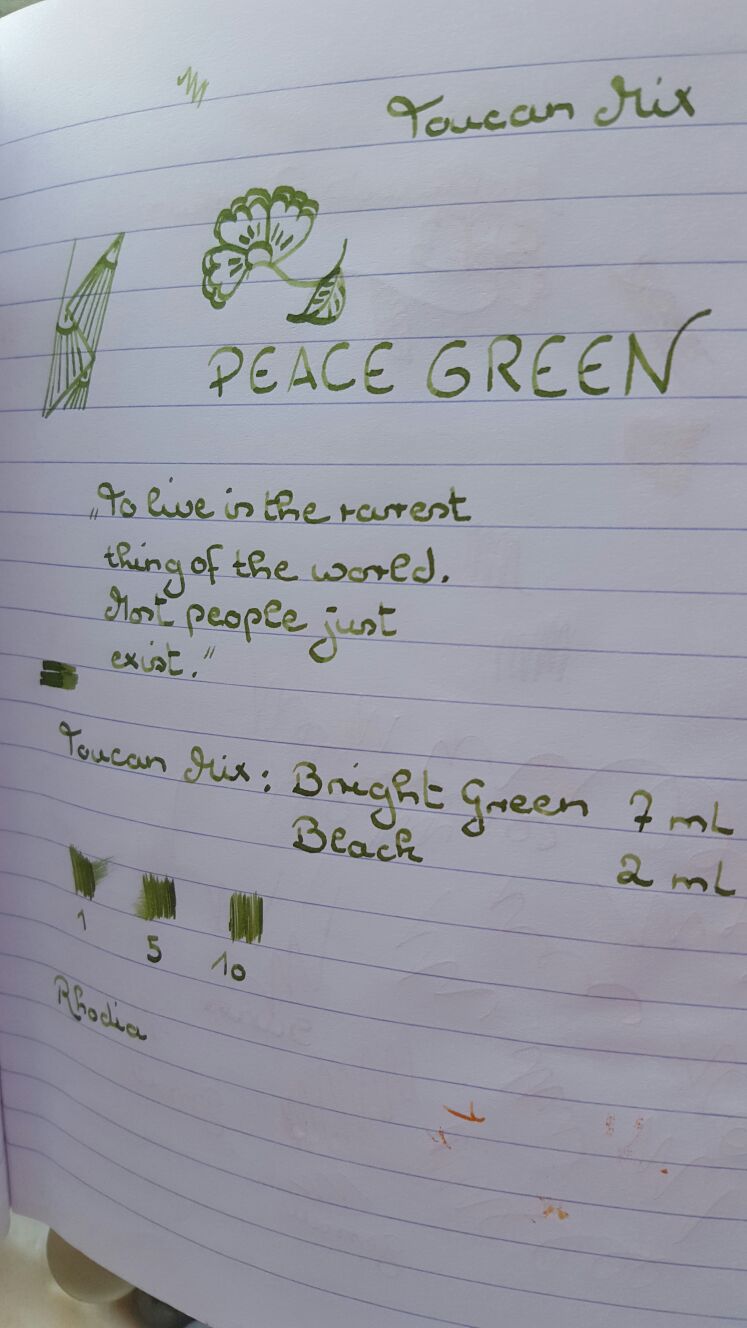 Toucan Mix
PEACE GREEN
„To live is the rarest
thing of the world.
Most people just
exist."
Toucan Mix: Bright Green 7 mL
Black 2 mL
1 5 10
Rhodia